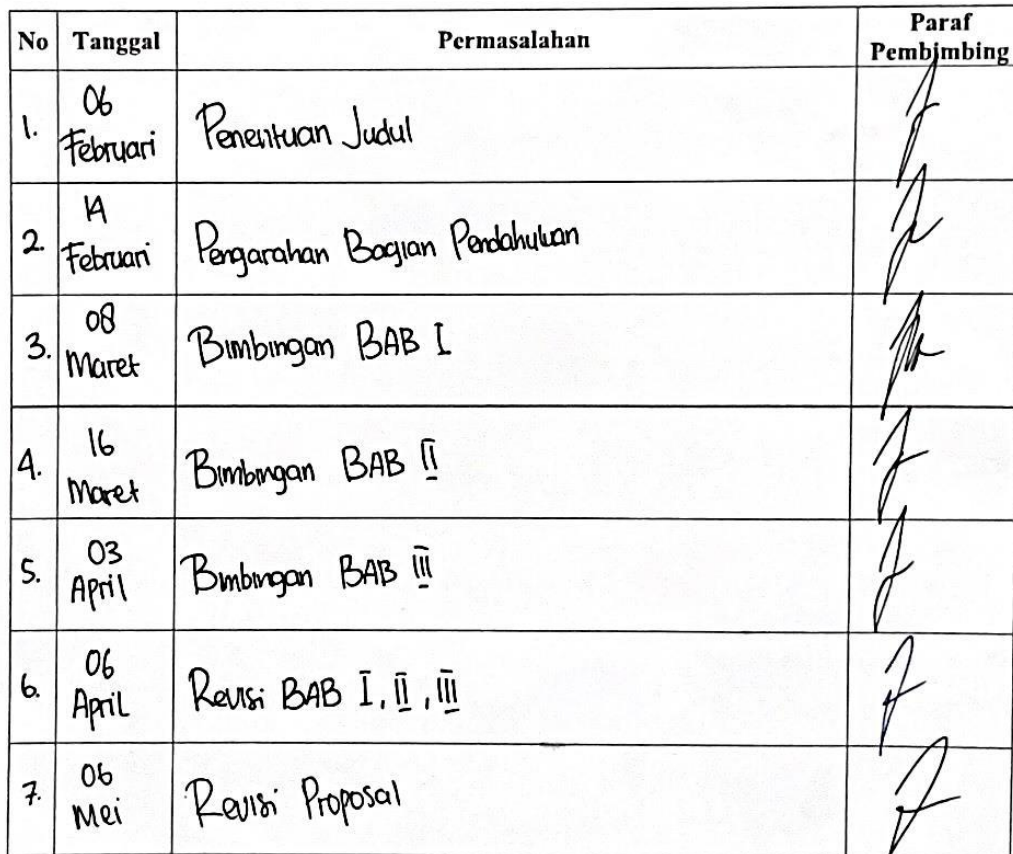 No Tanggal Permasalahan Paraf
Pembimbing
1. 06 Februari Penentuan Judul
2. 14 Februari Pengarahan Bagian Pendahuluan
3. 08 Maret Bimbingan BAB I
4. 16 Maret Bimbingan BAB II
5. 03 April Bimbingan BAB III
6. 06 April Revisi BAB I, II, III
7. 06 Mei Revisi Proposal